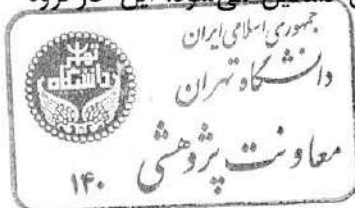 می‌شود. این
جمهوری اسلامی ایران
دانشگاه تهران
معاونت پژوهشی
۱۴۰